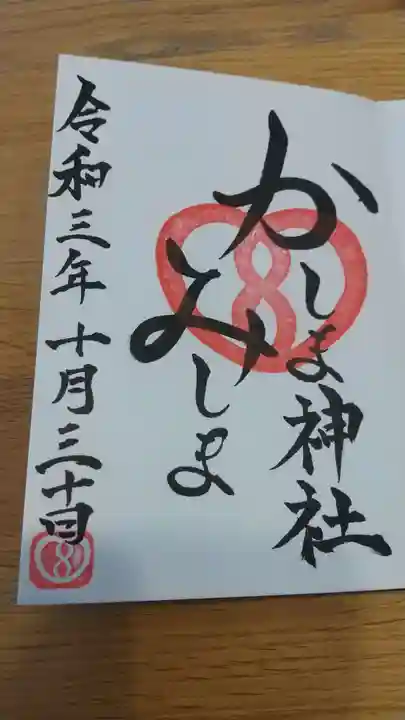 かしま神社
みしま
令和三年十月三十日
8
8